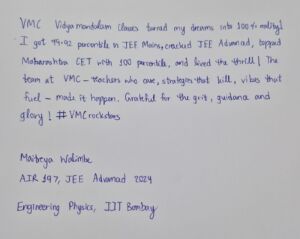 VMC Vidyamandalam Classes turned my dreams into 100% reality!
I got 99.92 percentile in JEE Mains, cracked JEE Advanced, topped
Maharashtra CET with 100 percentile, and lived the thrill! The
team at VMC – teachers who care, strategies that kill, vibes that
fuel – made it happen. Grateful for the grit, guidance and
glory! #VMCrockstars
Maitreya Walimbe
AIR 197, JEE Advanced 2024
Engineering Physics, IIT Bombay